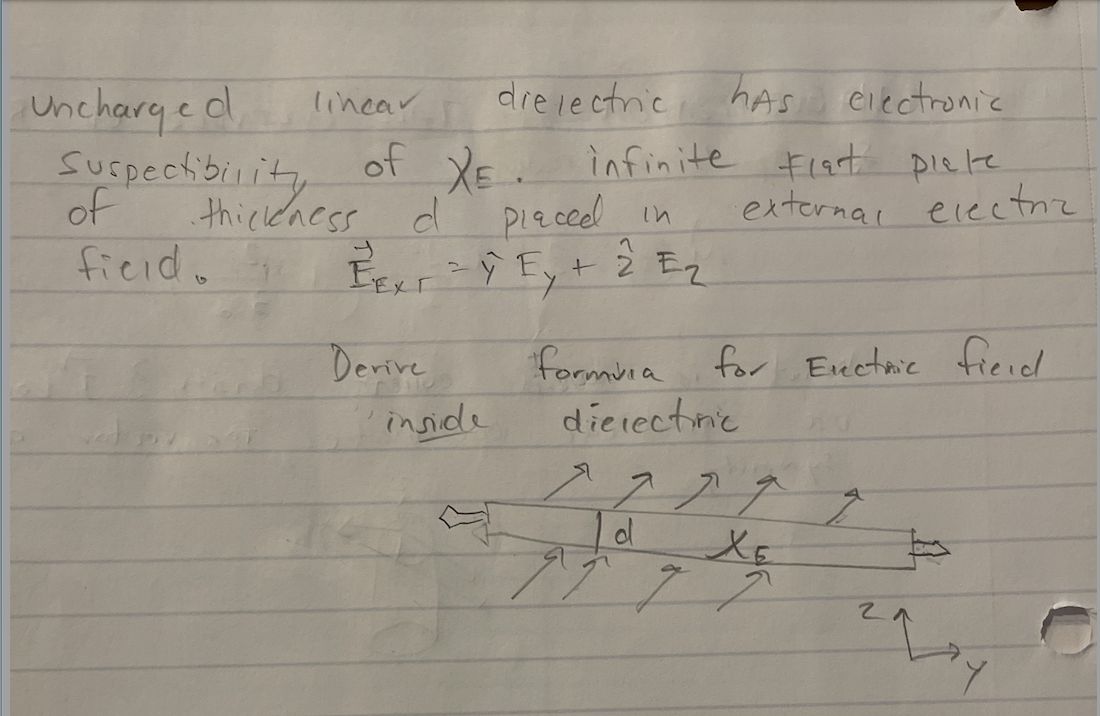 uncharged linear dielectric hAs electronic
suspectibility of χE. infinite flat plate
of thickness d placed in external electric
field. E⃗EXT = ŷ Ey + ẑ Ez
Derive formula for Electric field
inside dielectric
d χE
z
y